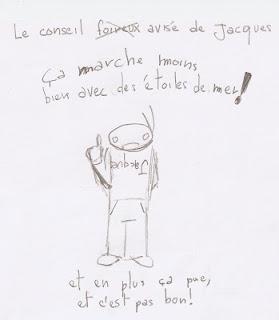 Le conseil foireux avisé de Jacques
Ça marche moins
bien avec des étoiles de mer!
Jacques
et en plus ça pue,
et c'est pas bon!